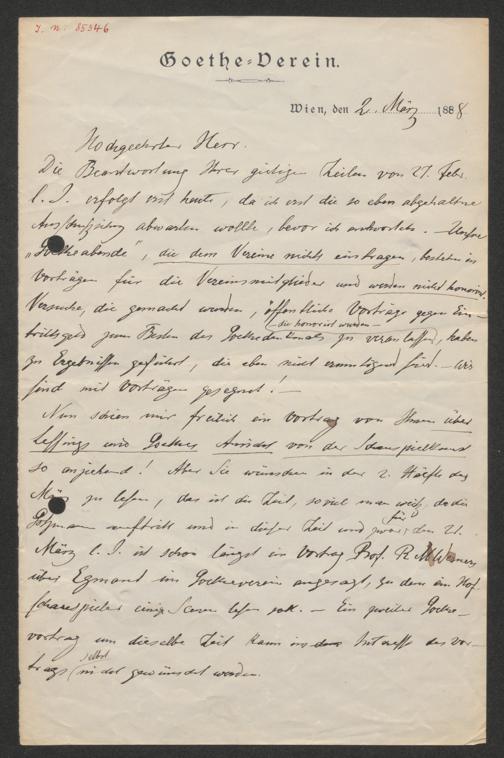 J. N. 85546
Goethe-Verein.
Wien, den 2. März 1888
Hochgeehrter Herr.
Die Beantwortung Ihrer gütigen Zeilen vom 27. Febr.
l. J. erfolgt erst heute, da ich erst die so eben abgehaltene
Ausschußsitzung abwarten wollte, bevor ich antwortete. – Unsere
„Goetheabende", die dem Vereine nichts eintragen, bestehen in
Vorträgen für die Vereinsmitglieder und werden nicht honorirt.
Versuche, die gemacht wurden, öffentliche Vorträge gegen Ein-
– die honorirt wurden –
trittsgeld zum Besten des Goethedenkmals zu veranlassen, haben
zu Ergebnissen geführt, die eben nicht ermutigend sind. – Wir
sind mit Vorträgen gesegnet! –
Nun schien mir freilich ein Vortrag von Ihnen über
Lessings und Goethes Ansicht von der Schauspielkunst
so anziehend! Aber Sie wünschen in der 2. Hälfte des
März zu lesen, das ist die Zeit, soviel man weiß, da die
auftritt und in dieser Zeit und zwar für den 21.
März l. J. ist schon längst ein Vortrag Prof. R. M. Werners
über Egmont im Goetheverein angesagt, zu dem ein Hof-
schauspieler einige Scenen lesen soll. – Ein zweiter Goethe-
vortrag um dieselbe Zeit kann im Interesse des Vor-
trags selbst nicht gewünscht werden.